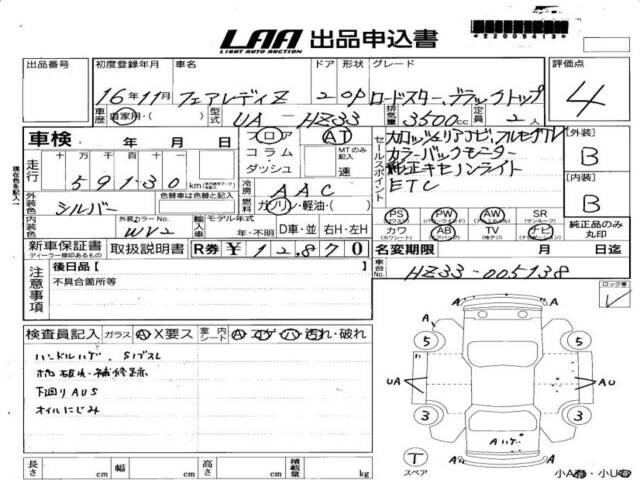 LAA 出品申込書
LIGHT AUTO AUCTION
*22005413*
出品番号 初度登録年月 車名 ドア 形状 グレード 評価点
16年11月 フェアレディZ 2 OP ロードスター、ブラックトップ 4
車歴 自家用・( ) 型式 UA-HZ33 排気量 3500cc 定員 2人
車検 年 月 日 フロア AT
コラム・ MTのみ記入
ダッシュ 速
セールスポイント
カロッツェリアナビ、フルセグTV
カラーバックモニター
純正キセノンライト
ETC
【外装】 B
【内装】 B
現在色を記入
走行 十 万 千 百 十 一
59130 km
冷房 AAC
外装色 シルバー 色替車は色替と記入 燃料 ガソリン・軽油・( )
内装色 外装カラーNo. WV2 輸入車 モデル年式 年・不明 D車・並 右H・左H
PS PW AW SR (サンルーフ) 純正品のみ丸印
カワ (カワシート) AB (エアバッグ) TV ナビ
新車保証書 取扱説明書 R券 ¥12,870
ディーラー捺印あるもの
名変期限 月 日迄
注意事項 後日品【 】
不具合箇所等
車台No. HZ33-005138
ロック車
検査員記入 ガラス A・X要ス 室内シート A・コゲ・ハ・汚れ・破れ
ハンドルハゲ、Sノブスレ
内 破れ・補修跡
下廻りAUS
オイルにじみ
A
5 5
UA A AU
3 3
Aハゲ A
T
スペア
小A有・小U有
長さ cm 幅 cm 高さ cm 積載量 kg